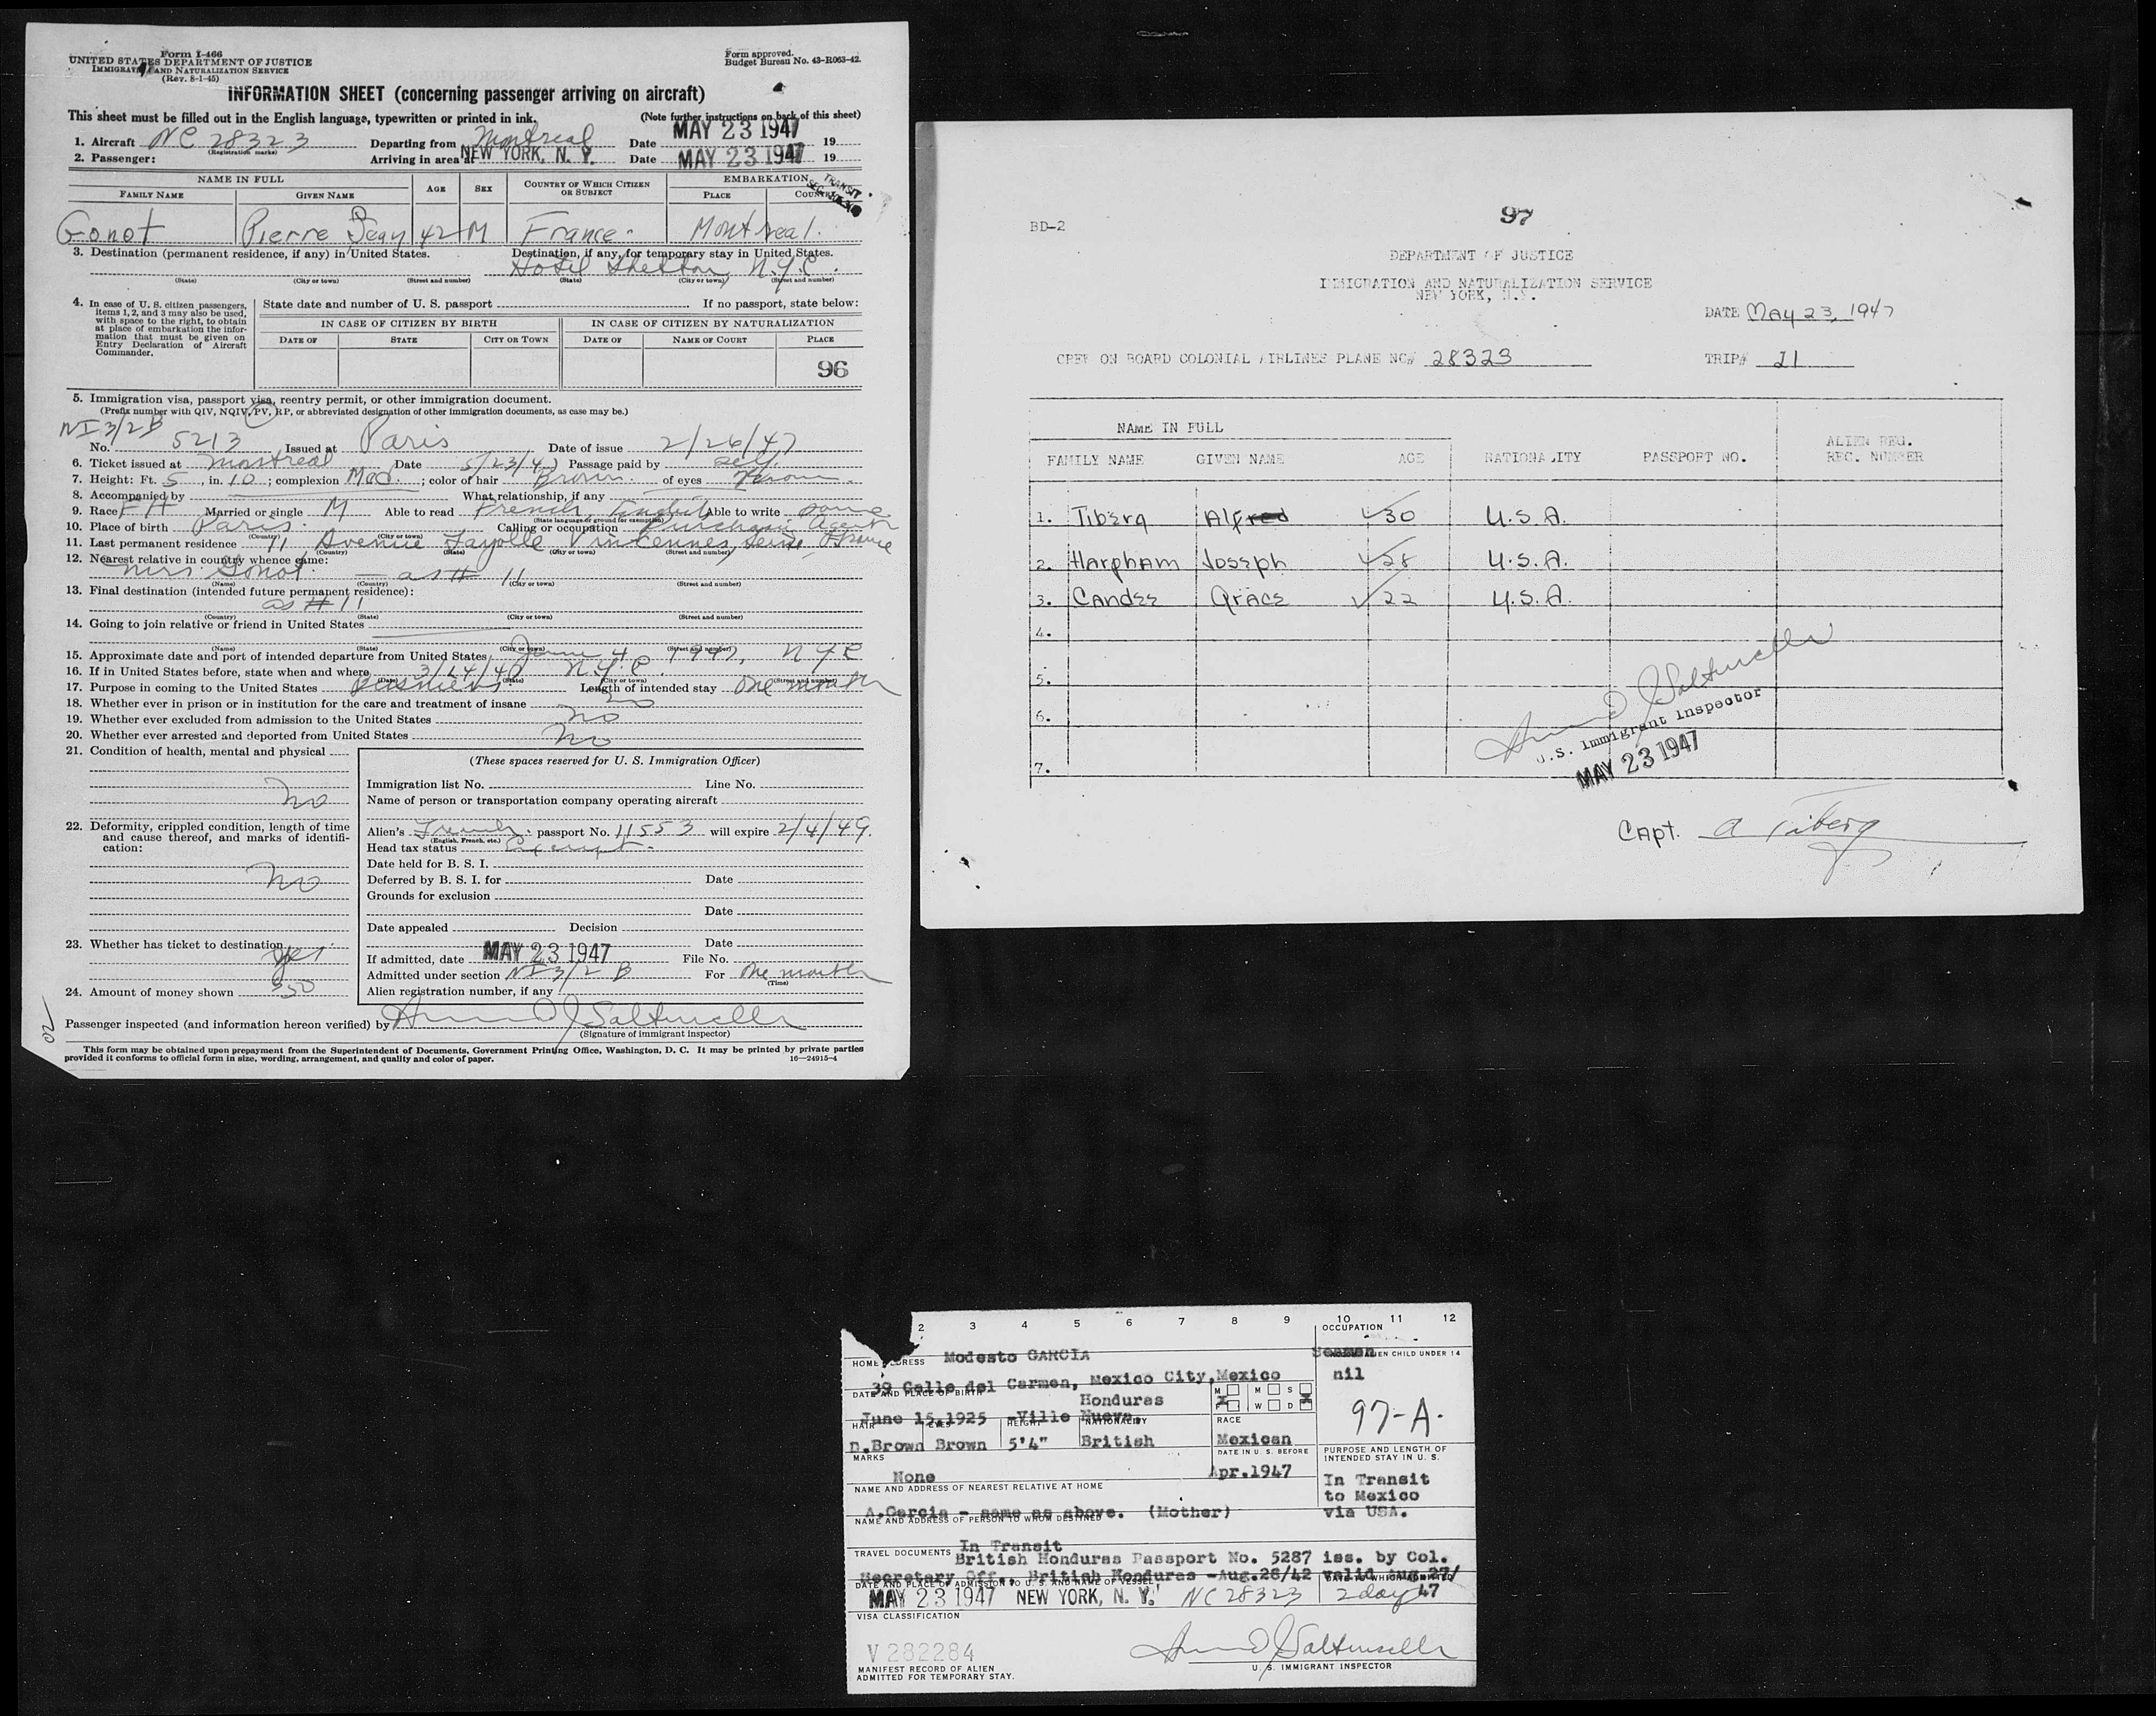 Form I-466
UNITED STATES DEPARTMENT OF JUSTICE
IMMIGRATION AND NATURALIZATION SERVICE
(Rev. 8-1-45)
Form approved.
Budget Bureau No. 43-R063-42.
INFORMATION SHEET (concerning passenger arriving on aircraft)
This sheet must be filled out in the English language, typewritten or printed in ink. (Note further instructions on back of this sheet)
1. Aircraft NC 28323 Departing from Montreal Date MAY 23 1947 19
(Registration marks)
2. Passenger: Arriving in area at NEW YORK, N. Y. Date MAY 23 1947 19
NAME IN FULL AGE SEX COUNTRY OF WHICH CITIZEN OR SUBJECT EMBARKATION
FAMILY NAME GIVEN NAME PLACE COUNTRY
TRANSIT
Gonot Pierre Jean 42 M France Montreal.
3. Destination (permanent residence, if any) in United States. Destination, if any, for temporary stay in United States.
Hotel Shelton, N.Y.C.
(State) (City or town) (Street and number) (State) (City or town) (Street and number)
4. In case of U. S. citizen passengers, items 1, 2, and 3 may also be used, with space to the right, to obtain at place of embarkation the information that must be given on Entry Declaration of Aircraft Commander.
State date and number of U. S. passport If no passport, state below:
IN CASE OF CITIZEN BY BIRTH IN CASE OF CITIZEN BY NATURALIZATION
DATE OF STATE CITY OR TOWN DATE OF NAME OF COURT PLACE
96
5. Immigration visa, passport visa, reentry permit, or other immigration document.
(Prefix number with QIV, NQIV, PV, RP, or abbreviated designation of other immigration documents, as case may be.)
NI 3/2 B
No. 5213 Issued at Paris Date of issue 2/26/47
6. Ticket issued at Montreal Date 5/23/47 Passage paid by self
7. Height: Ft. 5, in. 10; complexion Med.; color of hair Brown. of eyes Brown.
8. Accompanied by What relationship, if any
9. Race FH Married or single M Able to read French, English Able to write same
(State language or ground for exemption)
10. Place of birth Paris. Calling or occupation Purchasing Agent
(Country) (City or town)
11. Last permanent residence 11 Avenue Fayolle Vincennes, Seine France
(Country) (State) (City or town) (Street and number)
12. Nearest relative in country whence came:
Mrs. Gonot. — as # 11
(Name) (Country) (City or town) (Street and number)
13. Final destination (intended future permanent residence):
as # 11
(Country) (State) (City or town) (Street and number)
14. Going to join relative or friend in United States
(Name) (State) (City or town) (Street and number)
15. Approximate date and port of intended departure from United States June 4 1947, NYC
16. If in United States before, state when and where 3/14/40 N.Y.C.
(Date) (State) (City or town) (Street and number)
17. Purpose in coming to the United States Business. Length of intended stay One month
18. Whether ever in prison or in institution for the care and treatment of insane no
19. Whether ever excluded from admission to the United States no
20. Whether ever arrested and deported from United States no
21. Condition of health, mental and physical
no
22. Deformity, crippled condition, length of time and cause thereof, and marks of identification:
no
23. Whether has ticket to destination yes
24. Amount of money shown $50
(These spaces reserved for U. S. Immigration Officer)
Immigration list No. Line No.
Name of person or transportation company operating aircraft
Alien's French passport No. 11553 will expire 2/4/49.
(English, French, etc.)
Head tax status Exempt.
Date held for B. S. I.
Deferred by B. S. I. for Date
Grounds for exclusion
Date
Date appealed Decision
Date
If admitted, date MAY 23 1947 File No.
Admitted under section NI 3/2 B For One month
(Time)
Alien registration number, if any
Passenger inspected (and information hereon verified) by
(Signature of immigrant inspector)
This form may be obtained upon prepayment from the Superintendent of Documents, Government Printing Office, Washington, D. C. It may be printed by private parties
provided it conforms to official form in size, wording, arrangement, and quality and color of paper. 16—24915-4
97
BD-2
DEPARTMENT OF JUSTICE
IMMIGRATION AND NATURALIZATION SERVICE
NEW YORK, N.Y.
DATE May 23, 1947
CREW ON BOARD COLONIAL AIRLINES PLANE NO# 28323 TRIP# 21
NAME IN FULL
FAMILY NAME GIVEN NAME AGE NATIONALITY PASSPORT NO. ALIEN REG. REC. NUMBER
1. Tiberg Alfred 30 U.S.A.
2. Harpham Joseph 28 U.S.A.
3. Candee Grace 22 U.S.A.
4.
5.
6.
7.
U.S. Immigrant Inspector
MAY 23 1947
Capt. A Tiberg
2 3 4 5 6 7 8 9 10 11 12
OCCUPATION
Modesto GARCIA Seaman
HOME ADDRESS
39 Calle del Carmen, Mexico City, Mexico nil
DATE AND PLACE OF BIRTH Honduras M M S
F W D
June 15, 1925 -Ville Nueva, 97-A.
HAIR EYES HEIGHT NATIONALITY RACE
D.Brown Brown 5'4" British Mexican
MARKS DATE IN U. S. BEFORE PURPOSE AND LENGTH OF INTENDED STAY IN U. S.
None Apr.1947
NAME AND ADDRESS OF NEAREST RELATIVE AT HOME In Transit
to Mexico
A.Garcia - same as above. (Mother) via USA.
NAME AND ADDRESS OF PERSON TO WHOM DESTINED
In Transit
TRAVEL DOCUMENTS British Honduras Passport No. 5287 iss. by Col.
Secretary Off., British Honduras -Aug.28/42 valid Aug.27/
DATE AND PLACE OF ADMISSION TO U. S. AND NAME OF VESSEL DATE TO WHICH ADMITTED
MAY 23 1947 NEW YORK, N. Y. NC 28323 2 day 47
VISA CLASSIFICATION
V 282284
MANIFEST RECORD OF ALIEN
ADMITTED FOR TEMPORARY STAY.
U. S. IMMIGRANT INSPECTOR